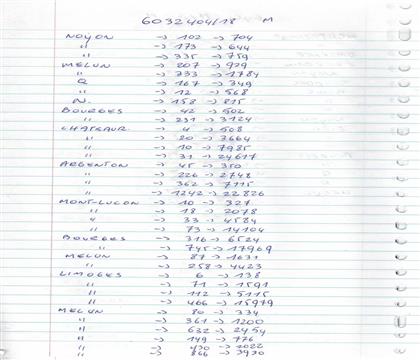 6032404/18 M
NOYON → 102 → 704
" → 173 → 644
" → 335 → 759
MELUN → 207 → 929
" → 333 → 1784
Q → 167 → 349
" → 12 → 568
N. → 158 → 815
BOURGES → 42 → 502
" → 231 → 3124
CHATEAUR. → 4 → 508
" → 20 → 3664
" → 10 → 7985
" → 31 → 24617
ARGENTON → 45 → 350
" → 226 → 2748
" → 362 → 7115
" → 1242 → 22826
MONT-LUCON → 10 → 327
" → 18 → 2078
" → 33 → 4584
" → 73 → 14104
BOURGES → 316 → 6524
" → 745 → 17969
MELUN → 87 → 1631
" → 258 → 4423
LIMOGES → 6 → 138
" → 71 → 1591
" → 112 → 5115
" → 466 → 15979
MELUN → 80 → 334
" → 361 → 1200
" → 632 → 2454
" → 149 → 776
" → 430 → 2022
" → 866 → 3930